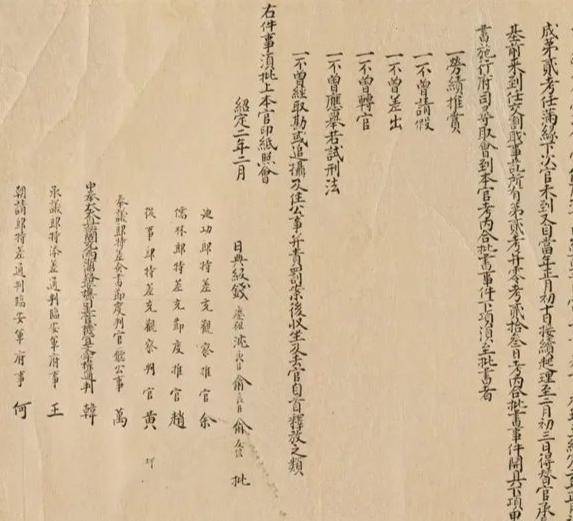 成第貳考任滿緣下次官未到又自當年正月初十日接續起理至二月初三日得替官承
基前来到任交割職事訖所有第貳考并零考貳拾叁日考内合批書事件開具下項申
書施行府司尋取會到本官考内合批書事件下項須至批書者
一勞績推賞
一不曾請假
一不曾差出
一不曾轉官
一不曾應舉若試刑法
一不曾經取勘或追攝及住公事并責罰案後收坐及去官自首釋放之類
右件事須批上本官印紙照會
紹定二年二月 日典級錢 沈 俞 俞 批
迪功郎特差充觀察推官余
儒林郎特差充節度推官趙
從事郎特差充觀察判官黄
奉議郎特差僉書節度判官廳公事 萬
韓
承議郎特添差通判臨安軍府事 王
朝請郎特差通判臨安軍府事 何